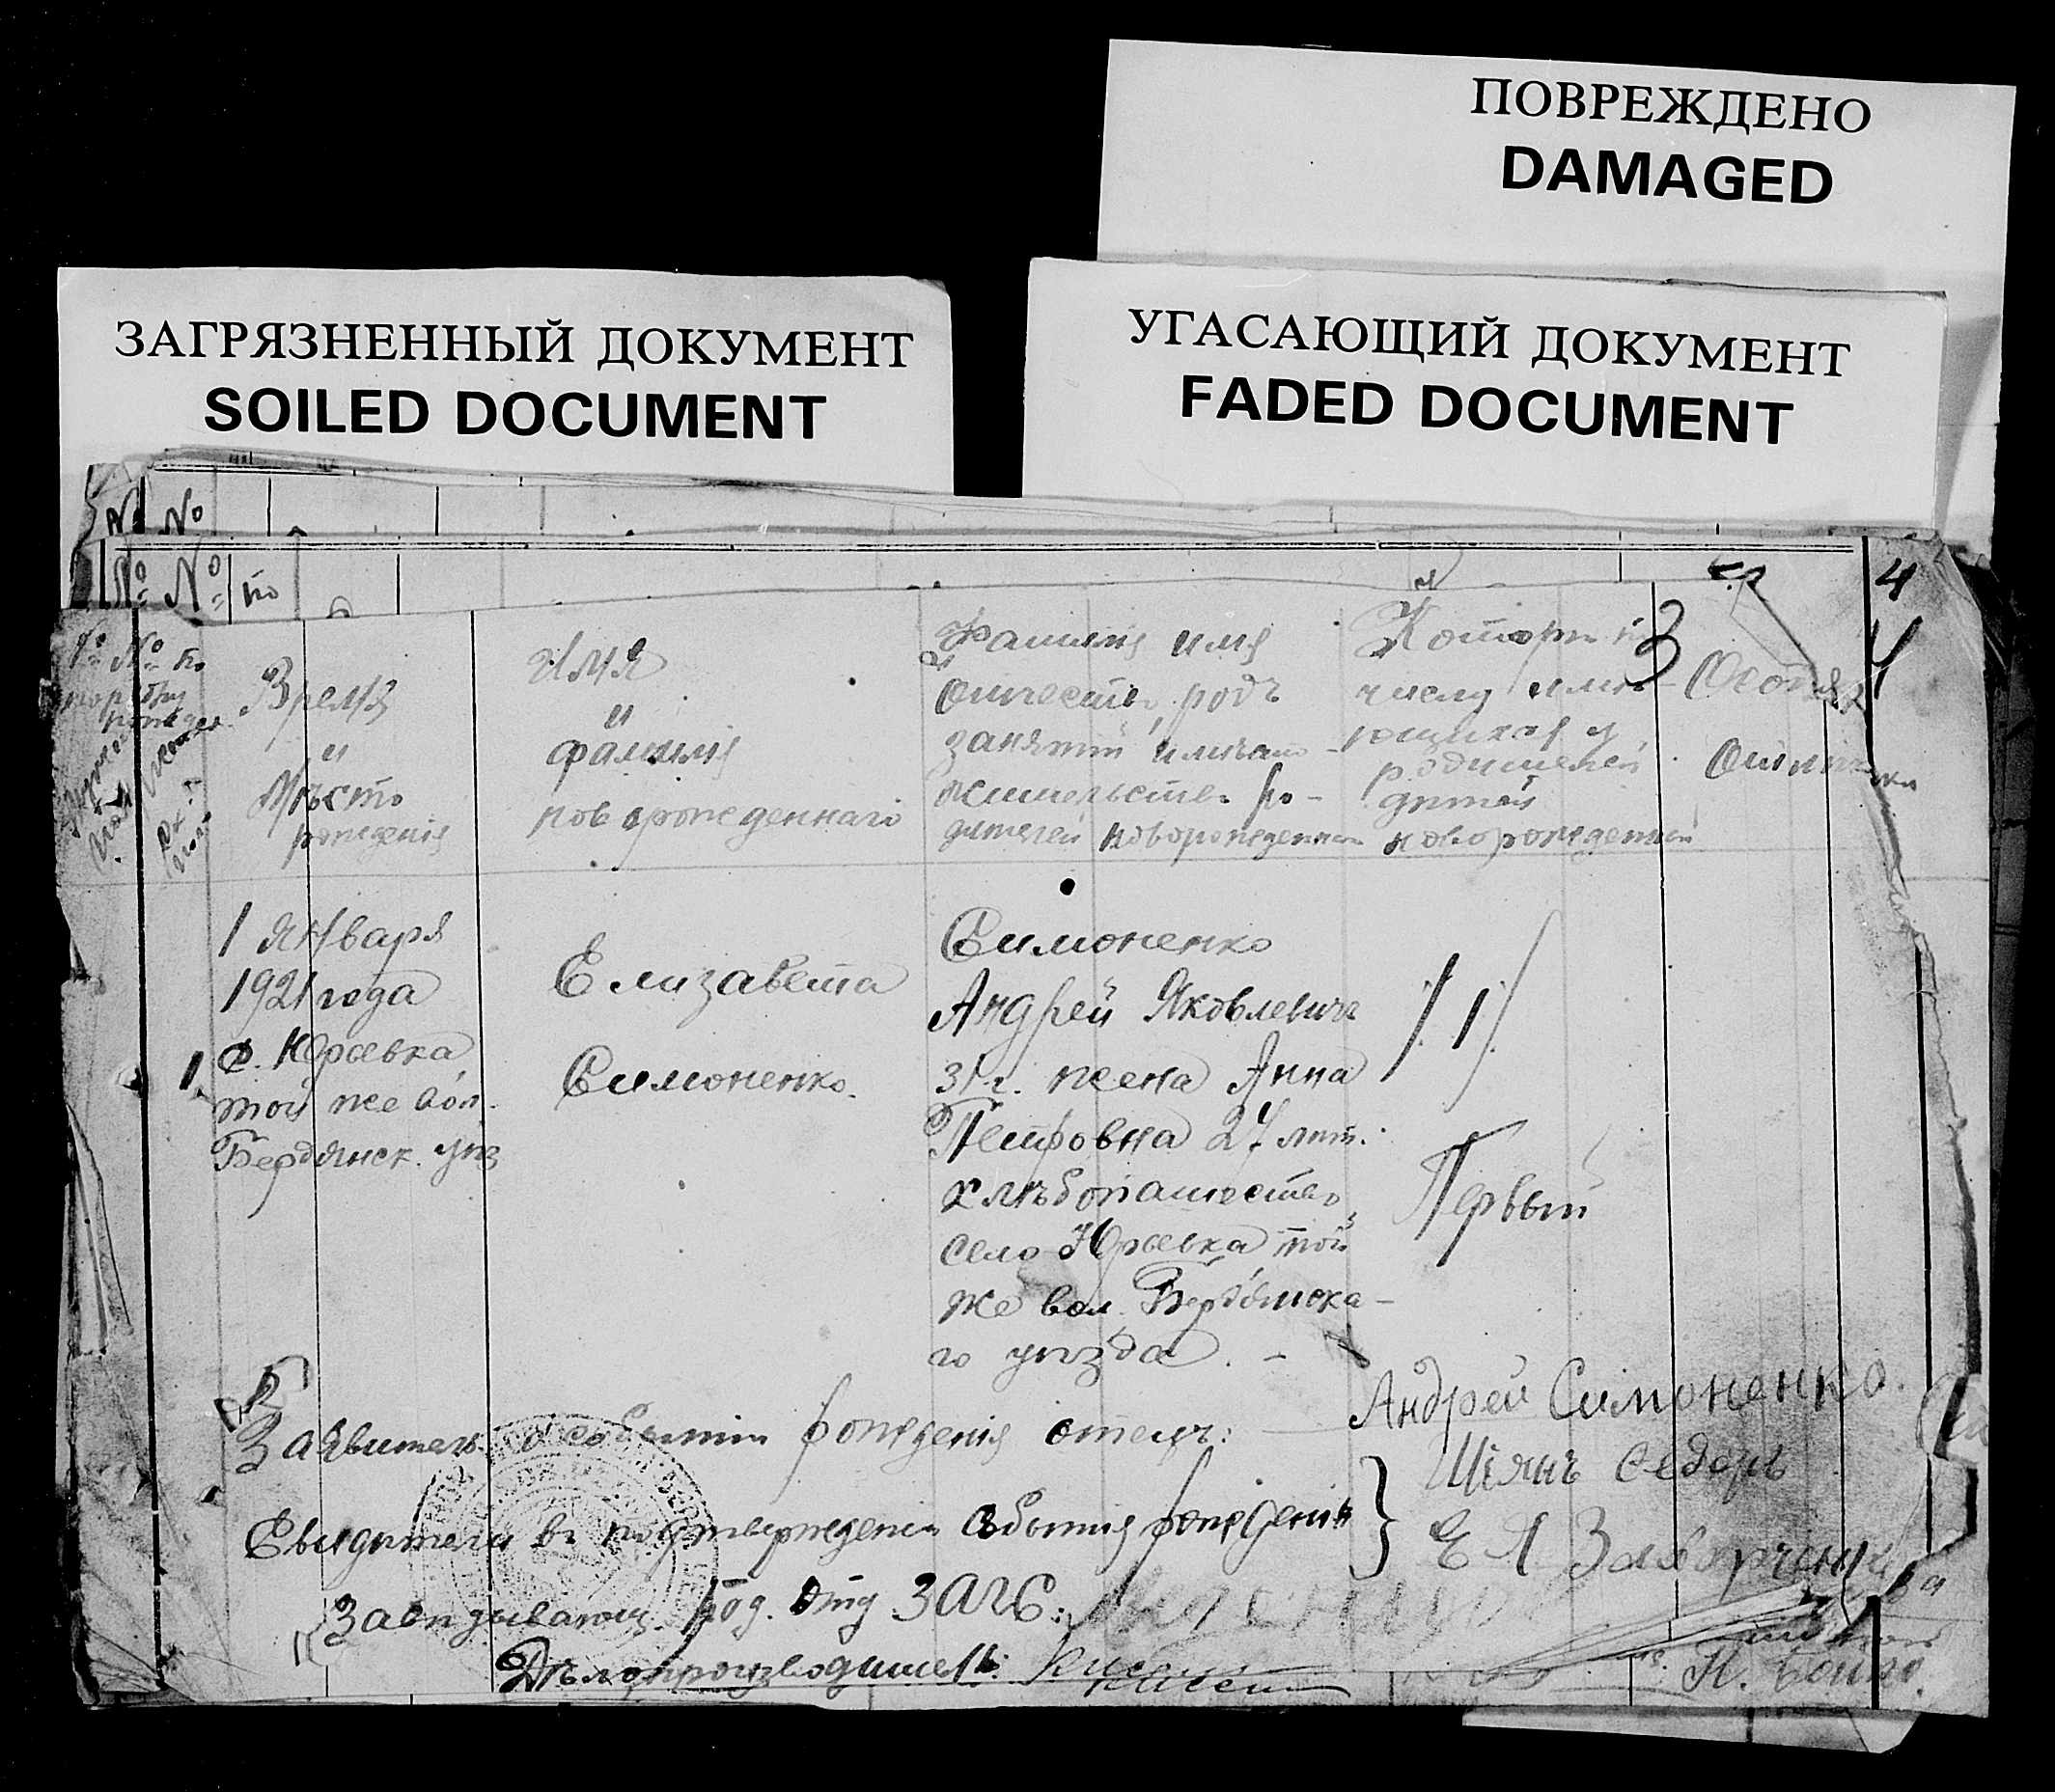 ПОВРЕЖДЕНО
DAMAGED
ЗАГРЯЗНЕННЫЙ ДОКУМЕНТ
SOILED DOCUMENT
УГАСАЮЩИЙ ДОКУМЕНТ
FADED DOCUMENT
№ №
№ № по
4
3
№ № по
Время
и
Мѣсто
рожденія
Имя
и
фамилия
новорожденнаго
Фамилия имя
Отчество, родъ
занятій и мѣсто
жительство ро-
дителей новорожденнаго
Которы
числу имѣ-
ющихся у
родителей
дѣтей
новорожденный
Особыя
Отмѣтки
1
1 января
1921 года
с. Юрьевка
той же вол.
Бердянск. уѣз
Елизавета
Симоненко.
Симоненко
Андрей Яковлевичъ
31 г. жена Анна
Петровна 27 лѣт.
хлѣбопашество
село Юрьевка той
же вол. Бердянска-
го уѣзда. -
/1/
Первый
Заявитель о событіи рожденія отецъ:
Андрей Симоненко.
Свидѣтели въ подтвержденіи событія рожденія
}
Шіянъ Седоръ
Е А
Завѣдывающ. под. Отд ЗАГС:
Дѣлопроизводитель: